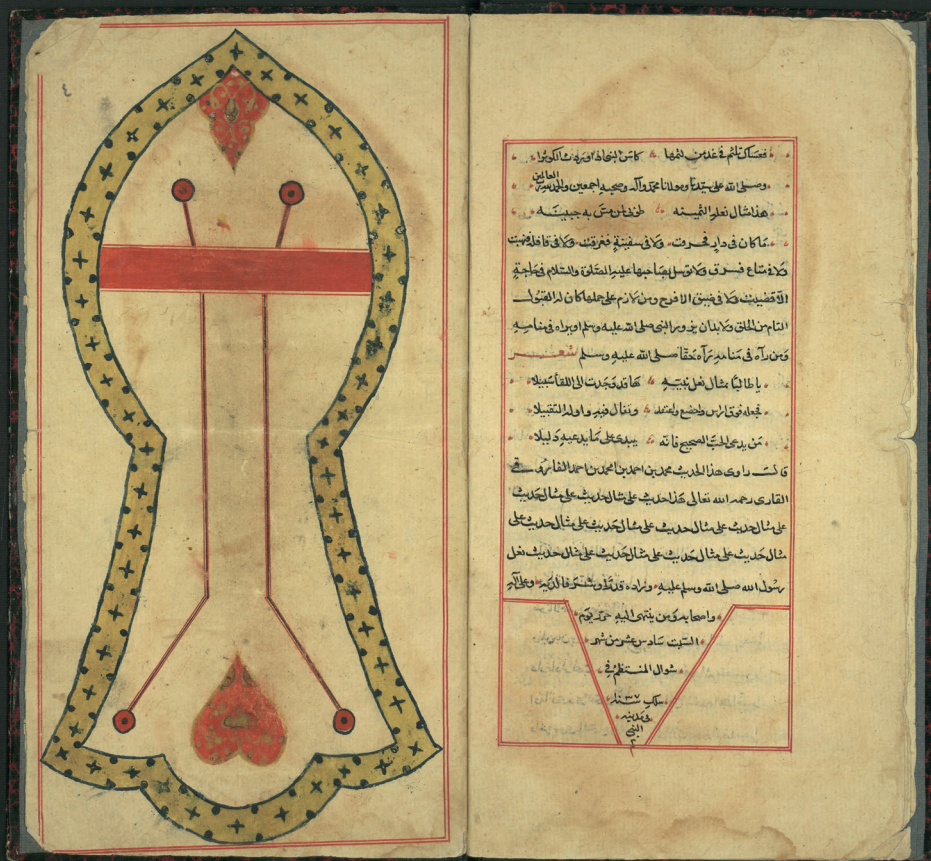 فعساك تلثم في غد من لثمها كاس النجاة اوردت الكوثرا
وصلى الله على سيدنا ومولانا محمد وآله وصحبه اجمعين والحمد لله رب العالمين
هذا مثال نعله الثمينه طوبى لمن مس به جبينه
ما كان في دار فحرقت ولا في سفينة فغرقت ولا في قافلة فنهبت
ولا في متاع فسرق ولا توسل بصاحبها عليه الصلوة والسلام في حاجة
الا قضيت ولا في ضيق الا فرج ومن لازم على حملها كان له القبول
التام من الخلق ولا بد ان يزور النبي صلى الله عليه وسلم او يراه في منامه
ومن رآه في منامه يرآه حقا صلى الله عليه وسلم شعر
يا طالبا مثال نعل نبيه ها قد وجدت الى اللقا سبيلا
فجعله فوق الراس واخضع واعتقد وتغال فيه واوله التقبيلا
من يدعي الحب الصحيح فانه يبدي على ما يدعيه دليلا
قالت راوي هذا الحديث محمد بن احمد بن محمد بن احمد الفاروقي
القاري رحمه الله تعالى هذا حديث على مثال حديث على مثال حديث
على مثال حديث على مثال حديث على مثال حديث على مثال حديث على
مثال حديث على مثال حديث على مثال حديث على مثال حديث نعل
رسول الله صلى الله وسلم عليه وزاده وعلى آله
واصحابه ومن ينتهى اليه يوم
السبت سادس عشر من شهر
شوال المنتظم في
سلك سنة ١٠٣٧
في مدينه
النبي
م
٤